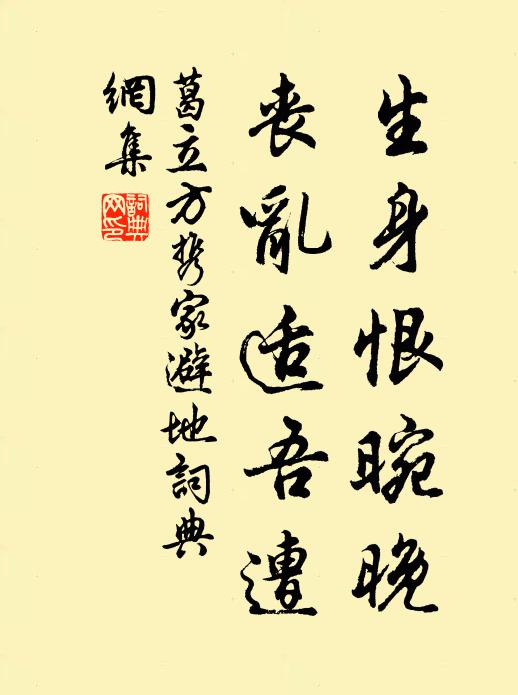 生身恨晼晚
喪亂适吾遭
葛立方携家避地詞典
網集
詞典
网印